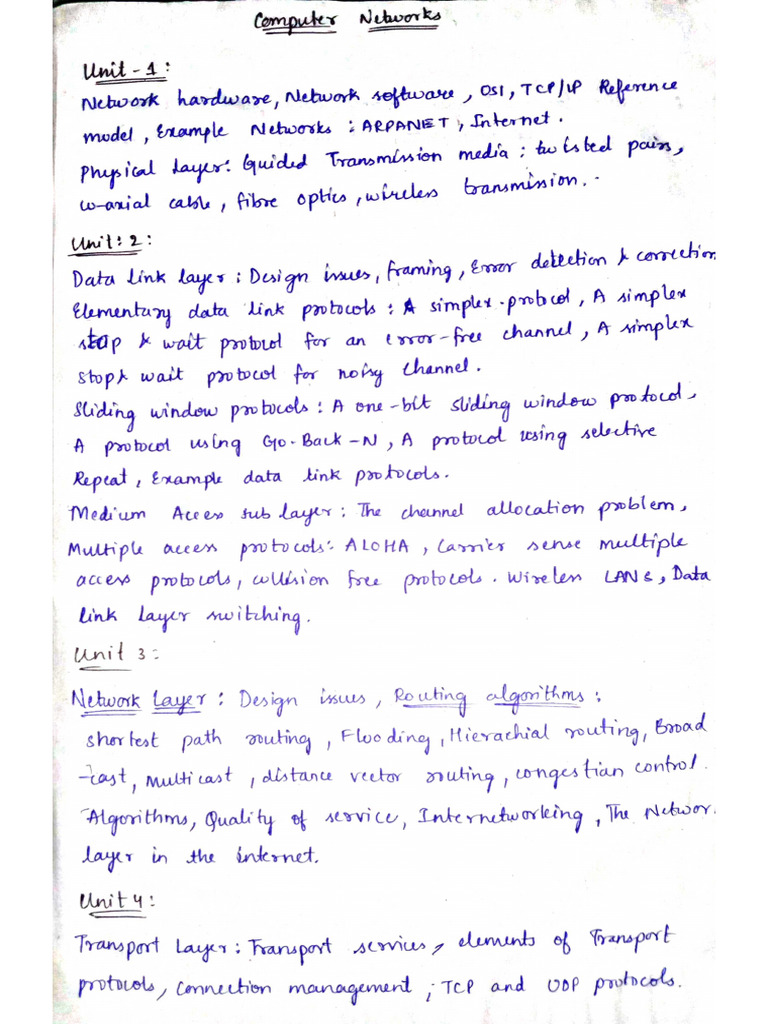 Computer Networks
Unit-1:
Network hardware, Network software, OSI, TCP/IP Reference
model, Example Networks: ARPANET, Internet.
Physical Layer: Guided Transmission media: twisted pairs,
co-axial cable, fibre optics, wireless transmission.
Unit: 2:
Data link layer: Design issues, framing, Error detection & correction
Elementary data link protocols: A simplex protocol, A simplex
stop & wait protocol for an error-free channel, A simplex
stop & wait protocol for noisy channel.
Sliding window protocols: A one-bit sliding window protocol,
A protocol using Go-Back-N, A protocol using selective
Repeat, Example data link protocols.
Medium Access sub layer: The channel allocation problem,
Multiple access protocols: ALOHA, Carrier sense multiple
access protocols, collision free protocols. Wireless LANs, Data
link layer switching.
Unit 3:
Network Layer: Design issues, Routing algorithms:
shortest path routing, Flooding, Hierachial routing, Broad
-cast, Multicast, distance vector routing, congestian control.
Algorithms, Quality of service, Internetworking, The Networ
layer in the internet.
Unit 4:
Transport Layer: Transport services, elements of Transport
protocols, Connection management; TCP and UDP protocols.